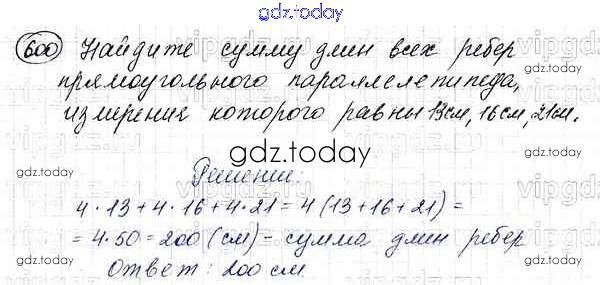 gdz.today
600 Найдите сумму длин всех ребер
прямоугольного параллелепипеда,
измерения которого равны 13см, 16см, 21см.
gdz.today
Решение:
4·13+4·16+4·21=4(13+16+21)=
=4·50=200(см)-сумма длин ребер
Ответ: 200 см